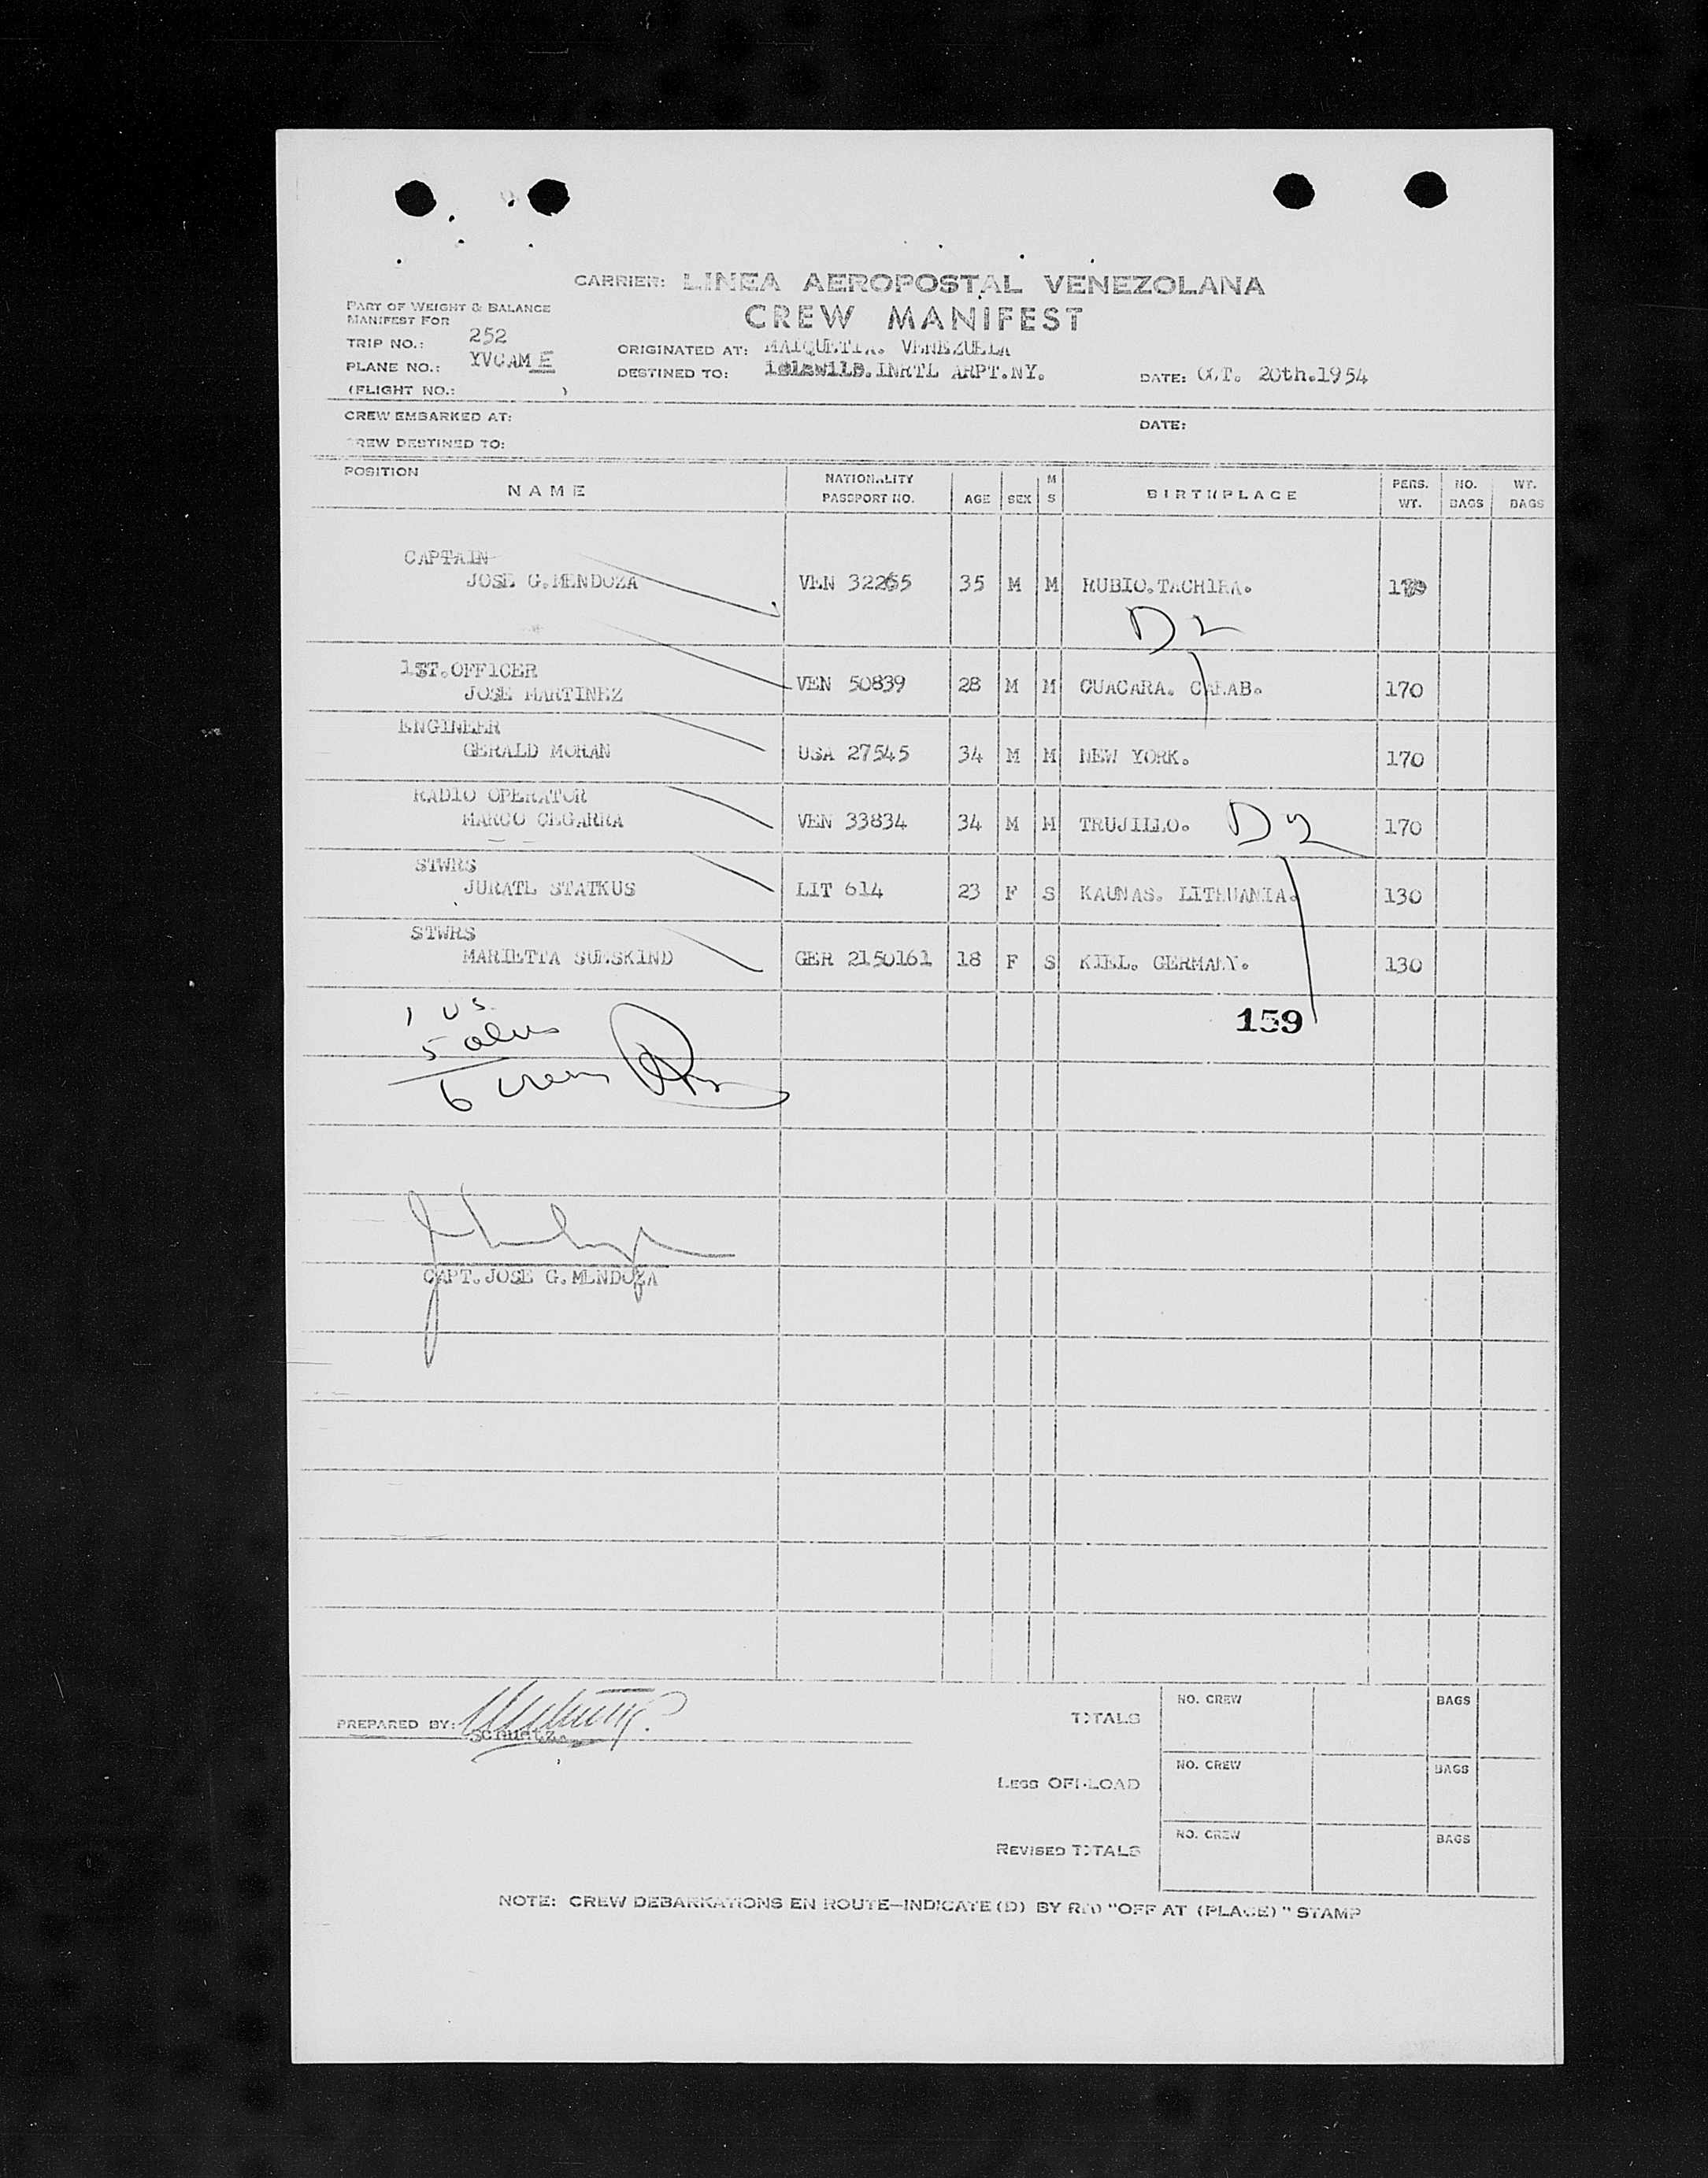 CARRIER: LINEA AEROPOSTAL VENEZOLANA
CREW MANIFEST
PART OF WEIGHT & BALANCE
MANIFEST FOR
TRIP NO.: 252
PLANE NO.: YVCAM E
(FLIGHT NO.: )
ORIGINATED AT: MAIQUETIA. VENEZUELA
DESTINED TO: INRTL ARPT.NY.
DATE: OCT. 20th.1954
CREW EMBARKED AT:
DATE:
CREW DESTINED TO:
POSITION
NAME
NATIONALITY
PASSPORT NO.
AGE
SEX
M
S
BIRTHPLACE
PERS.
WT.
NO.
BAGS
WT.
BAGS
CAPTAIN
JOSE G.MENDOZA VEN 32265 35 M M RUBIO.TACHIRA.
D2
1ST.OFFICER
JOSE MARTINEZ VEN 50839 28 M M GUACARA. CARAB. 170
ENGINEER
GERALD MORAN USA 27545 34 M M NEW YORK. 170
RADIO OPERATOR
MARCO CEGARRA VEN 33834 34 M M TRUJILLO. D2 170
STWRS
JURATE STATKUS LIT 614 23 F S KAUNAS. LITHUANIA. 130
STWRS
MARIETTA SUESKIND GER 2150161 18 F S KIEL. GERMANY. 130
159
1 US
5 alens
6 crew
CAPT.JOSE G.MENDOZA
PREPARED BY: Schuetz.
TOTALS NO. CREW BAGS
LESS OFF-LOAD NO. CREW BAGS
REVISED TOTALS NO. CREW BAGS
NOTE: CREW DEBARKATIONS EN ROUTE—INDICATE (D) BY RED "OFF AT (PLACE)" STAMP